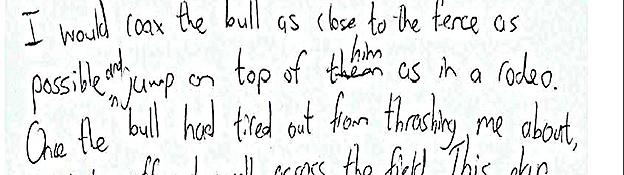 I would coax the bull as close to the fence as
possible and jump on top of him as in a rodeo.
Once the bull had tired out from thrashing me about,
off and across the field This plan